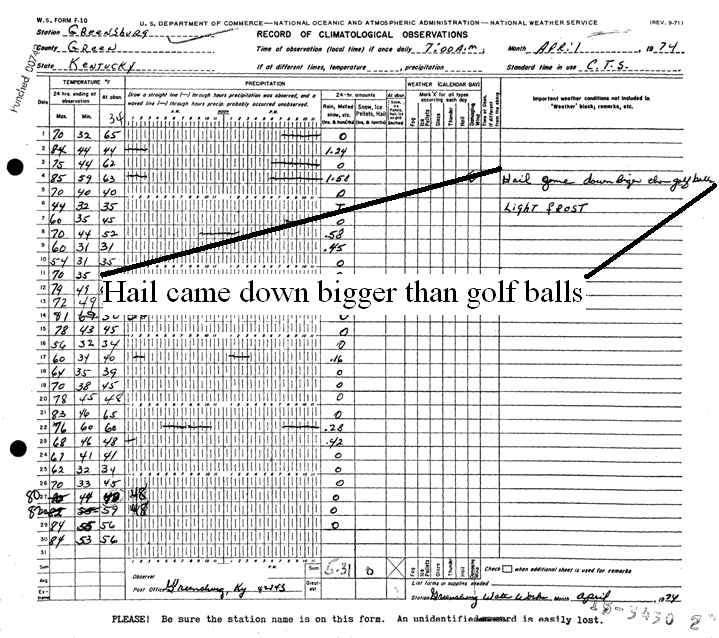 W.S. FORM F-10
U. S. DEPARTMENT OF COMMERCE—NATIONAL OCEANIC AND ATMOSPHERIC ADMINISTRATION—NATIONAL WEATHER SERVICE (REV. 9-71)
Station Greensburg RECORD OF CLIMATOLOGICAL OBSERVATIONS
County Green Time of observation (local time) if once daily 7:00 A.m. Month APRIL 1974
State Kentucky If at different times, temperature , precipitation Standard time in use C.T.S.
Punched
TEMPERATURE °F PRECIPITATION 24-hr. amounts At obsn. WEATHER (CALENDAR DAY)
Date 24 hrs. ending at observation At obsn. Draw a straight line (—) through hours precipitation was observed, and a waved line through hours precip. probably occurred unobserved. Rain, Melted snow, etc. Snow, Ice Pellets, Hail Mark 'X' for all types occurring each day Important weather conditions not included in 'Weather' block; remarks, etc.
Max. Min. 34 A.M. NOON P.M. Fog Ice Pellets Glaze Thunder Hail Damaging Wind
1 70 32 65 0
2 84 44 44 1.24
3 75 44 62 0
4 85 59 63 1.58 Hail come down biger than golf balls
5 70 40 40 0
6 44 32 35 T LIGHT FROST
7 60 35 45 0
8 70 44 52 .58
9 60 31 31 .45
10 54 31 35 0
11 70 35
12 79 49
Hail came down bigger than golf balls
13 72 49
14 81
15 78 43 45 0
16 56 32 34 0
17 60 34 40 .16
18 64 35 39 0
19 70 38 45 0
20 78 45 48 0
21 83 46 65 0
22 76 60 60 .28
23 68 46 48 .42
24 67 41 41 0
25 62 32 34 0
26 70 33 45 0
80 27 44 48 0
28 59 48 0
29 84 55 56 0
30 84 53 56
31
Sum Sum 5.31 0 Fog Ice Pellets Glaze Thunder Hail Check when additional sheet is used for remarks
Avg. Observer Greatest List forms or supplies needed
Extreme Post Office Greensburg, Ky 42743 Station Greensburg Water Works Month april 1974
15-3430 2
PLEASE! Be sure the station name is on this form. An unidentified record is easily lost.